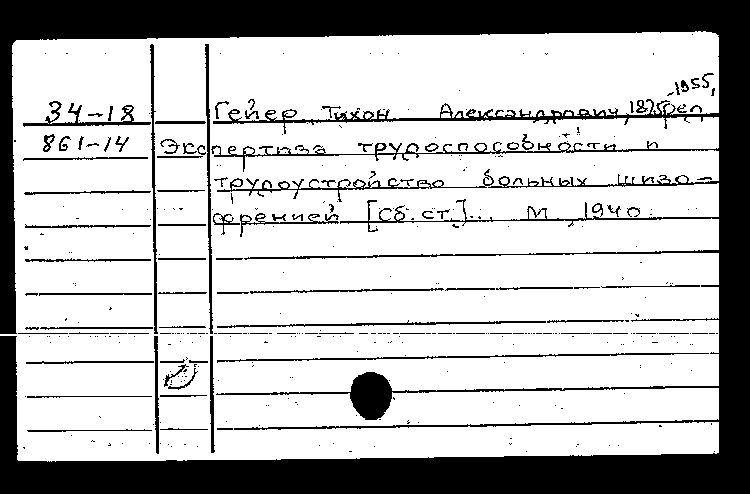 -1955,
34-18 Гейер, Тихон Александрович, 1875 ред.
861-14 Экспертиза трудоспособности и
трудоустройство больных шизо=
френией [Сб. ст.]... М., 1940